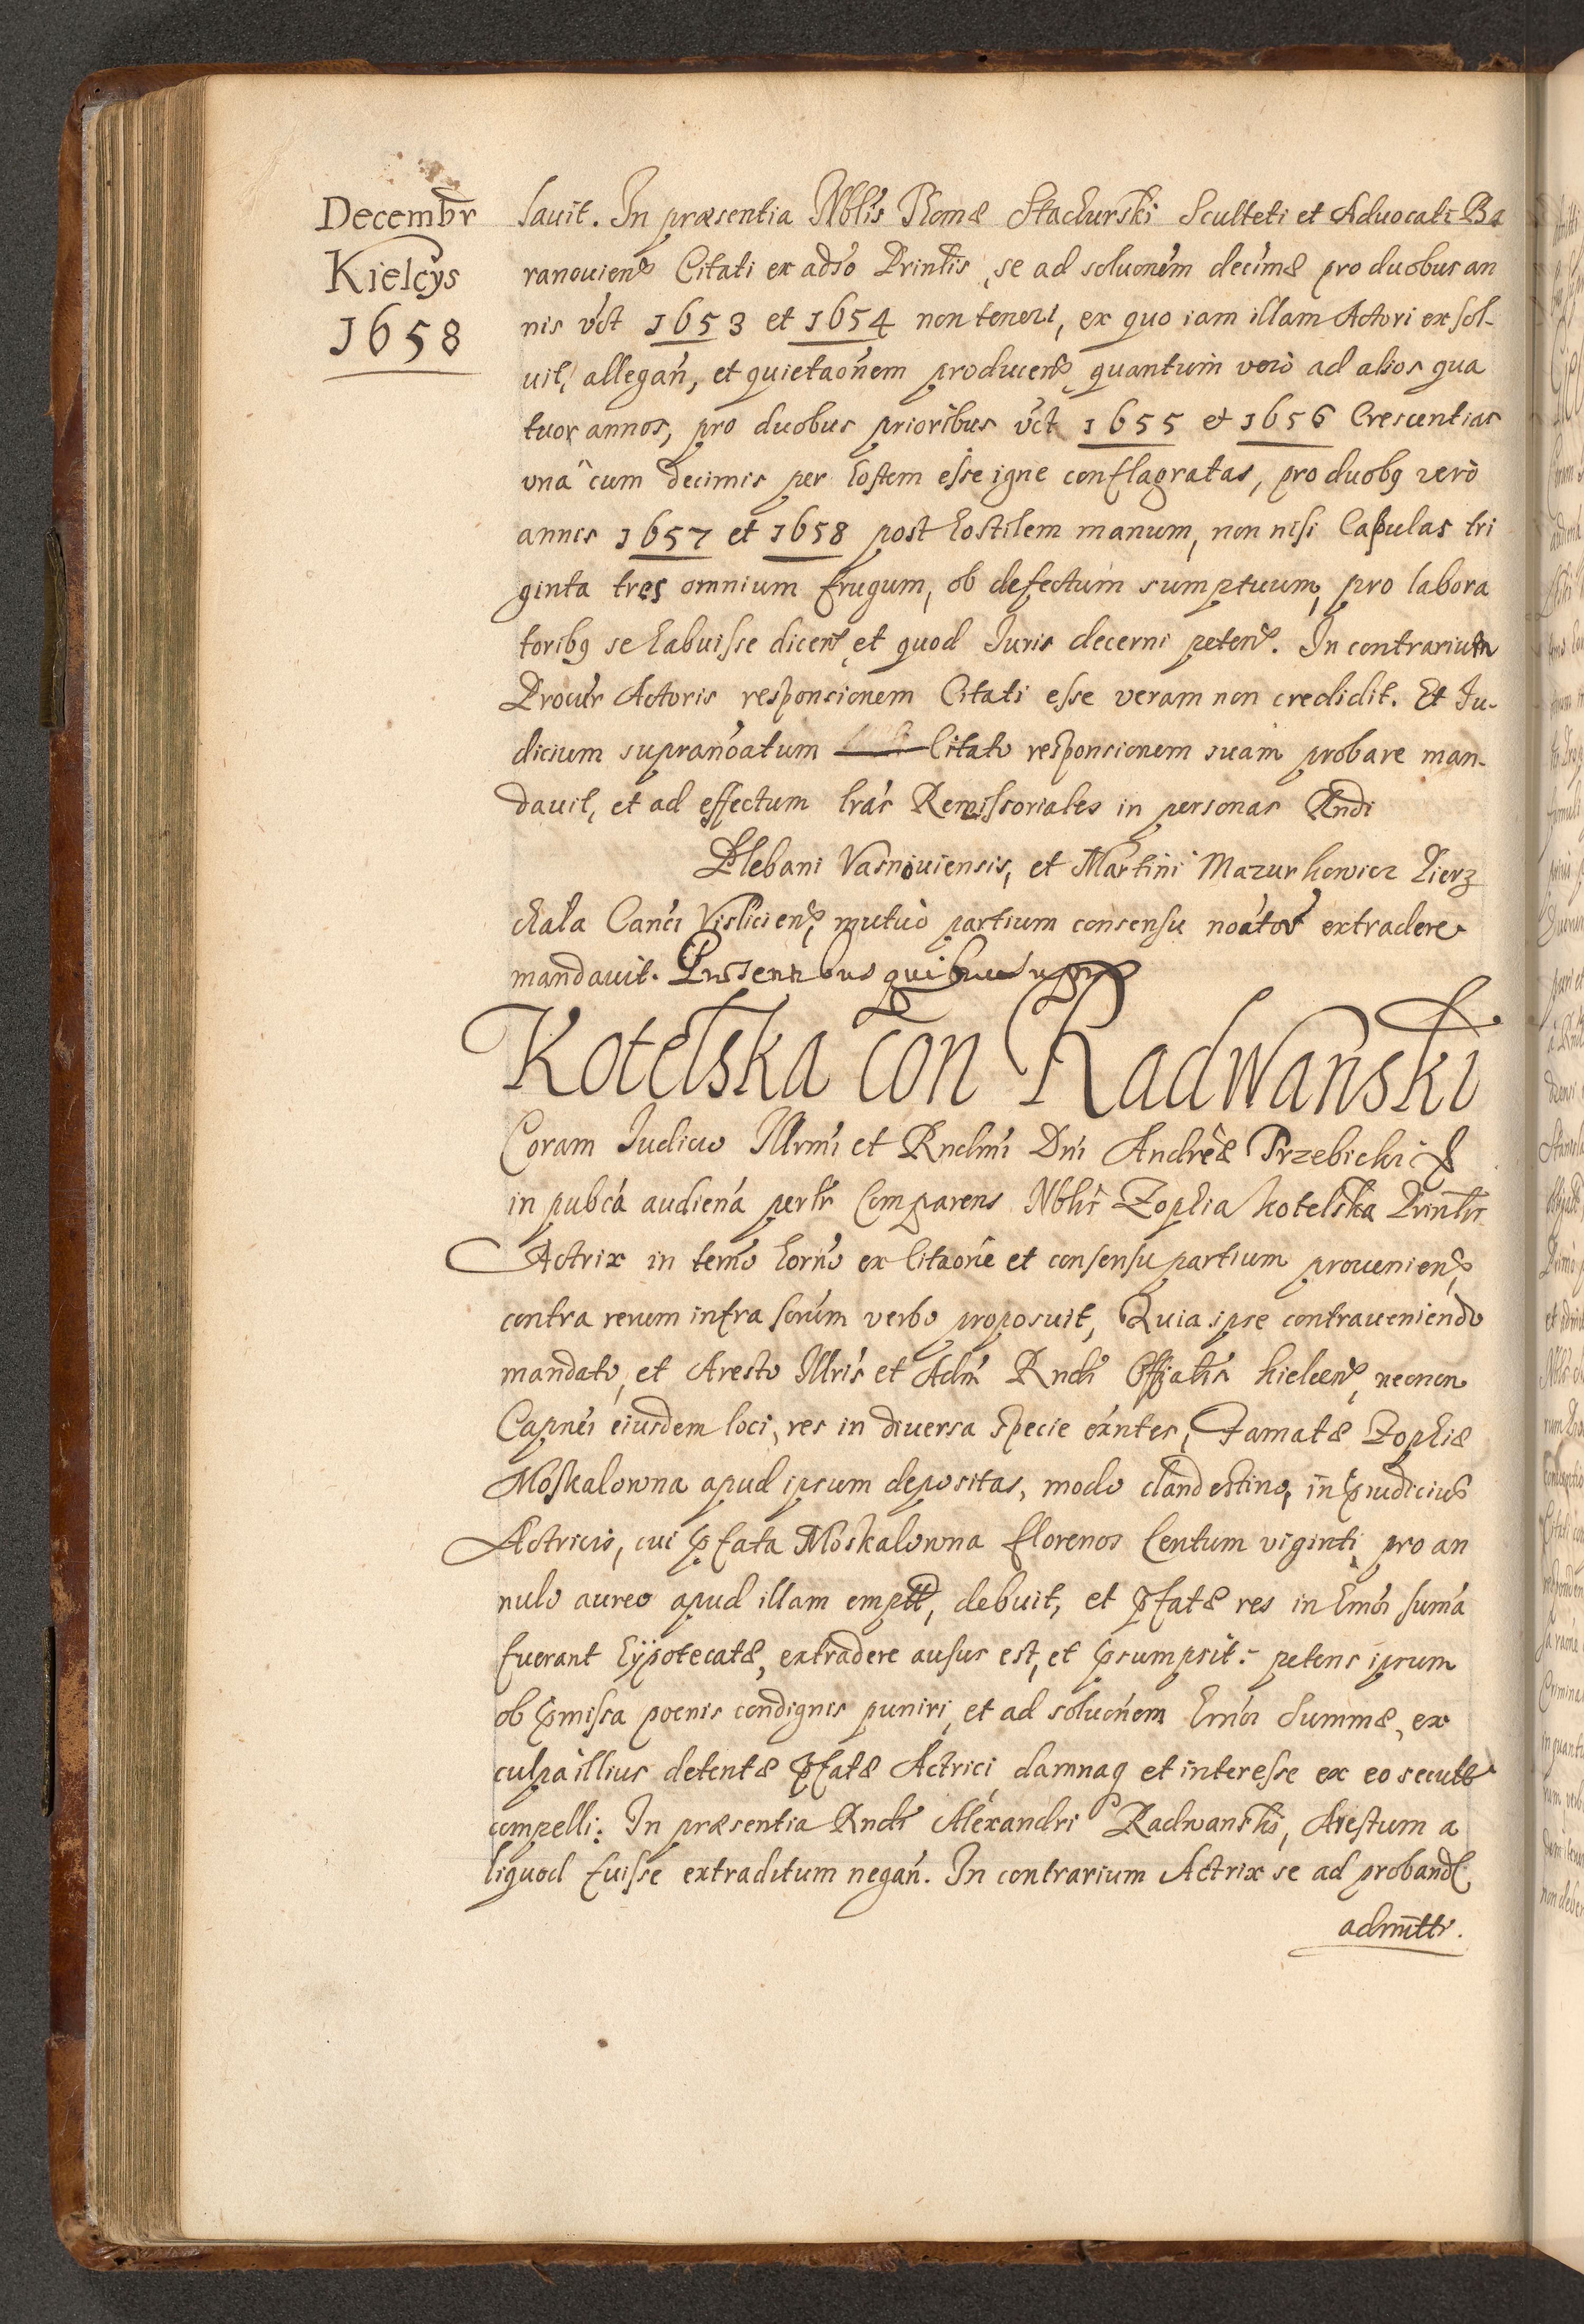 Decembr
Kielcys
1658
sauit. In præsentia Nblis Thomæ Stachurski Sculteti et Aduocati Ba
ranouiens Citati ex aduso Printis, se ad soluonem decimæ pro duobus an
nis vct 1653 et 1654 non teneri, ex quo iam illam Actori exsol-
uit, allegan, et quietaonem producens, quantum vero ad alios qua
tuor annos, pro duobus prioribus vct 1655 et 1656 Crescentias
vna cum decimis per hostem esse igne conflagratas, pro duobq vero
annis 1657 et 1658 post hostilem manum, non nisi Capulas tri
ginta tres omnium frugum, ob defectum sumptuum, pro labora
toribq se habuisse dicens et quod Iuris decerni petens. In contrarium
Procur Actoris responsionem Citati esse veram non credidit. Et Iu-
dicium supranoatum Citato responsionem suam probare man-
dauit, et ad effectum lras Remissoriales in personas Rndi
Plebani Vasniouiensis, et Martini Mazurkowicz Pierz
chala Canci Visliciens, mutuo partium consensu noator extradere
mandauit. Præsentibus quibus supra
Kotelska con Radwanski
Coram Iudicio Illrmi et Rndmi Dni Andreæ Trzebicki &
in pubca audiena perlr Comparens Nblis Zophia Kotelska Printis
Actrix in termo horno ex Citaone et consensu partium proueniens,
contra reum infra scrum verbo proposuit, Quia ipse contraueniendo
mandato, et Aresto Illris et Adm Rndi Offialis Kielcens, necnon
Capnei eiusdem loci, res in diuersa specie exntes, Famatæ Zophiæ
Moskalowna apud ipsum depositas, modo clandestino, in pudicium
Actricis, cui pfata Moskalowna florenos Centum viginti pro an
nulo aureo apud illam emptt, debuit, et pfatæ res in hmoi suma
fuerant hypotecatæ, extradere ausus est, et psumpsit: petens ipsum
ob pmissa poenis condignis puniri, et ad soluonem hmoi Summæ, ex
culpa illius detentæ pfatæ Actrici, damnaq et interesse ex eo secutt
compelli: In præsentia Rndi Alexandri Radwanski, Arestum a
liquod fuisse extraditum negan. In contrarium Actrix se ad proband
admitti.